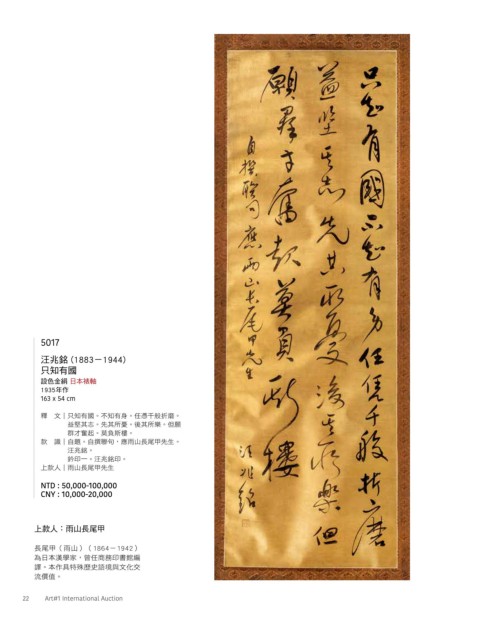 只知有國不知有身任凭千般折磨
益坚其志先其所憂後其所樂但
願羣才奮起莫負斯樓
自撰聯句應雨山長尾甲先生
汪兆銘
5017
汪兆銘 (1883－1944)
只知有國
設色金絹 日本裱軸
1935年作
163 x 54 cm
釋　文｜只知有國，不知有身，任憑千般折磨，
益堅其志，先其所憂，後其所樂，但願
群才奮起，莫負斯樓。
款　識｜自題，自撰聯句，應雨山長尾甲先生，
汪兆銘。
鈐印一，汪兆銘印。
上款人｜雨山長尾甲先生
NTD : 50,000-100,000
CNY : 10,000-20,000
上款人：雨山長尾甲
長尾甲（雨山）（1864－1942）
為日本漢學家，曾任商務印書館編
譯。本作具特殊歷史語境與文化交
流價值。
22 Art#1 International Auction